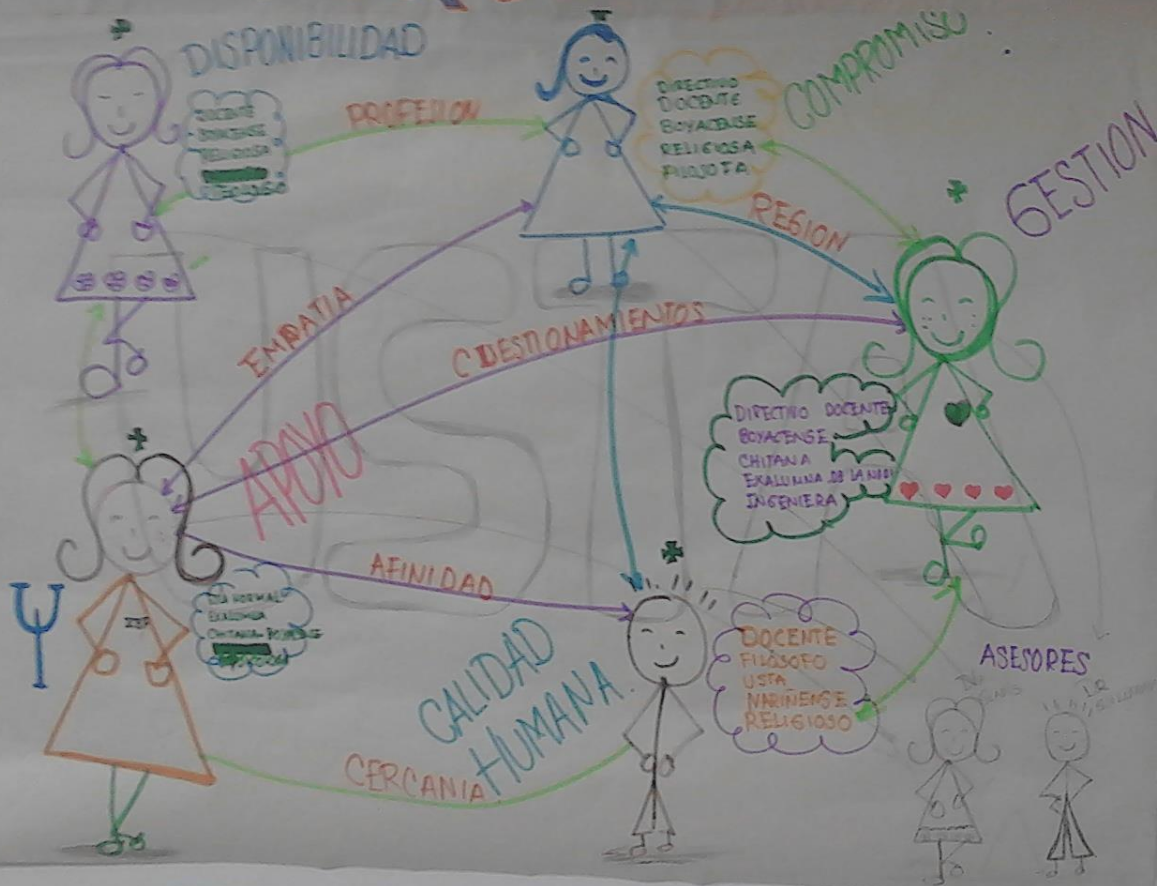 DISPONIBILIDAD
DOCENTE
BOYACENSE
RELIGIOSA
PROFESION
DIRECTIVO
DOCENTE
BOYACENSE
RELIGIOSA
FILOSOFA
COMPROMISO
GESTION
REGION
EMPATIA
CUESTIONAMIENTOS
APOYO
DIRECTIVO DOCENTE
BOYACENSE
CHITANA
EXALUMNA DE LA
INGENIERA
AFINIDAD
EXALUMNA
CALIDAD
HUMANA
DOCENTE
FILOSOFO
USTA
NARIÑENSE
RELIGIOSO
ASESORES
CERCANIA
USTA